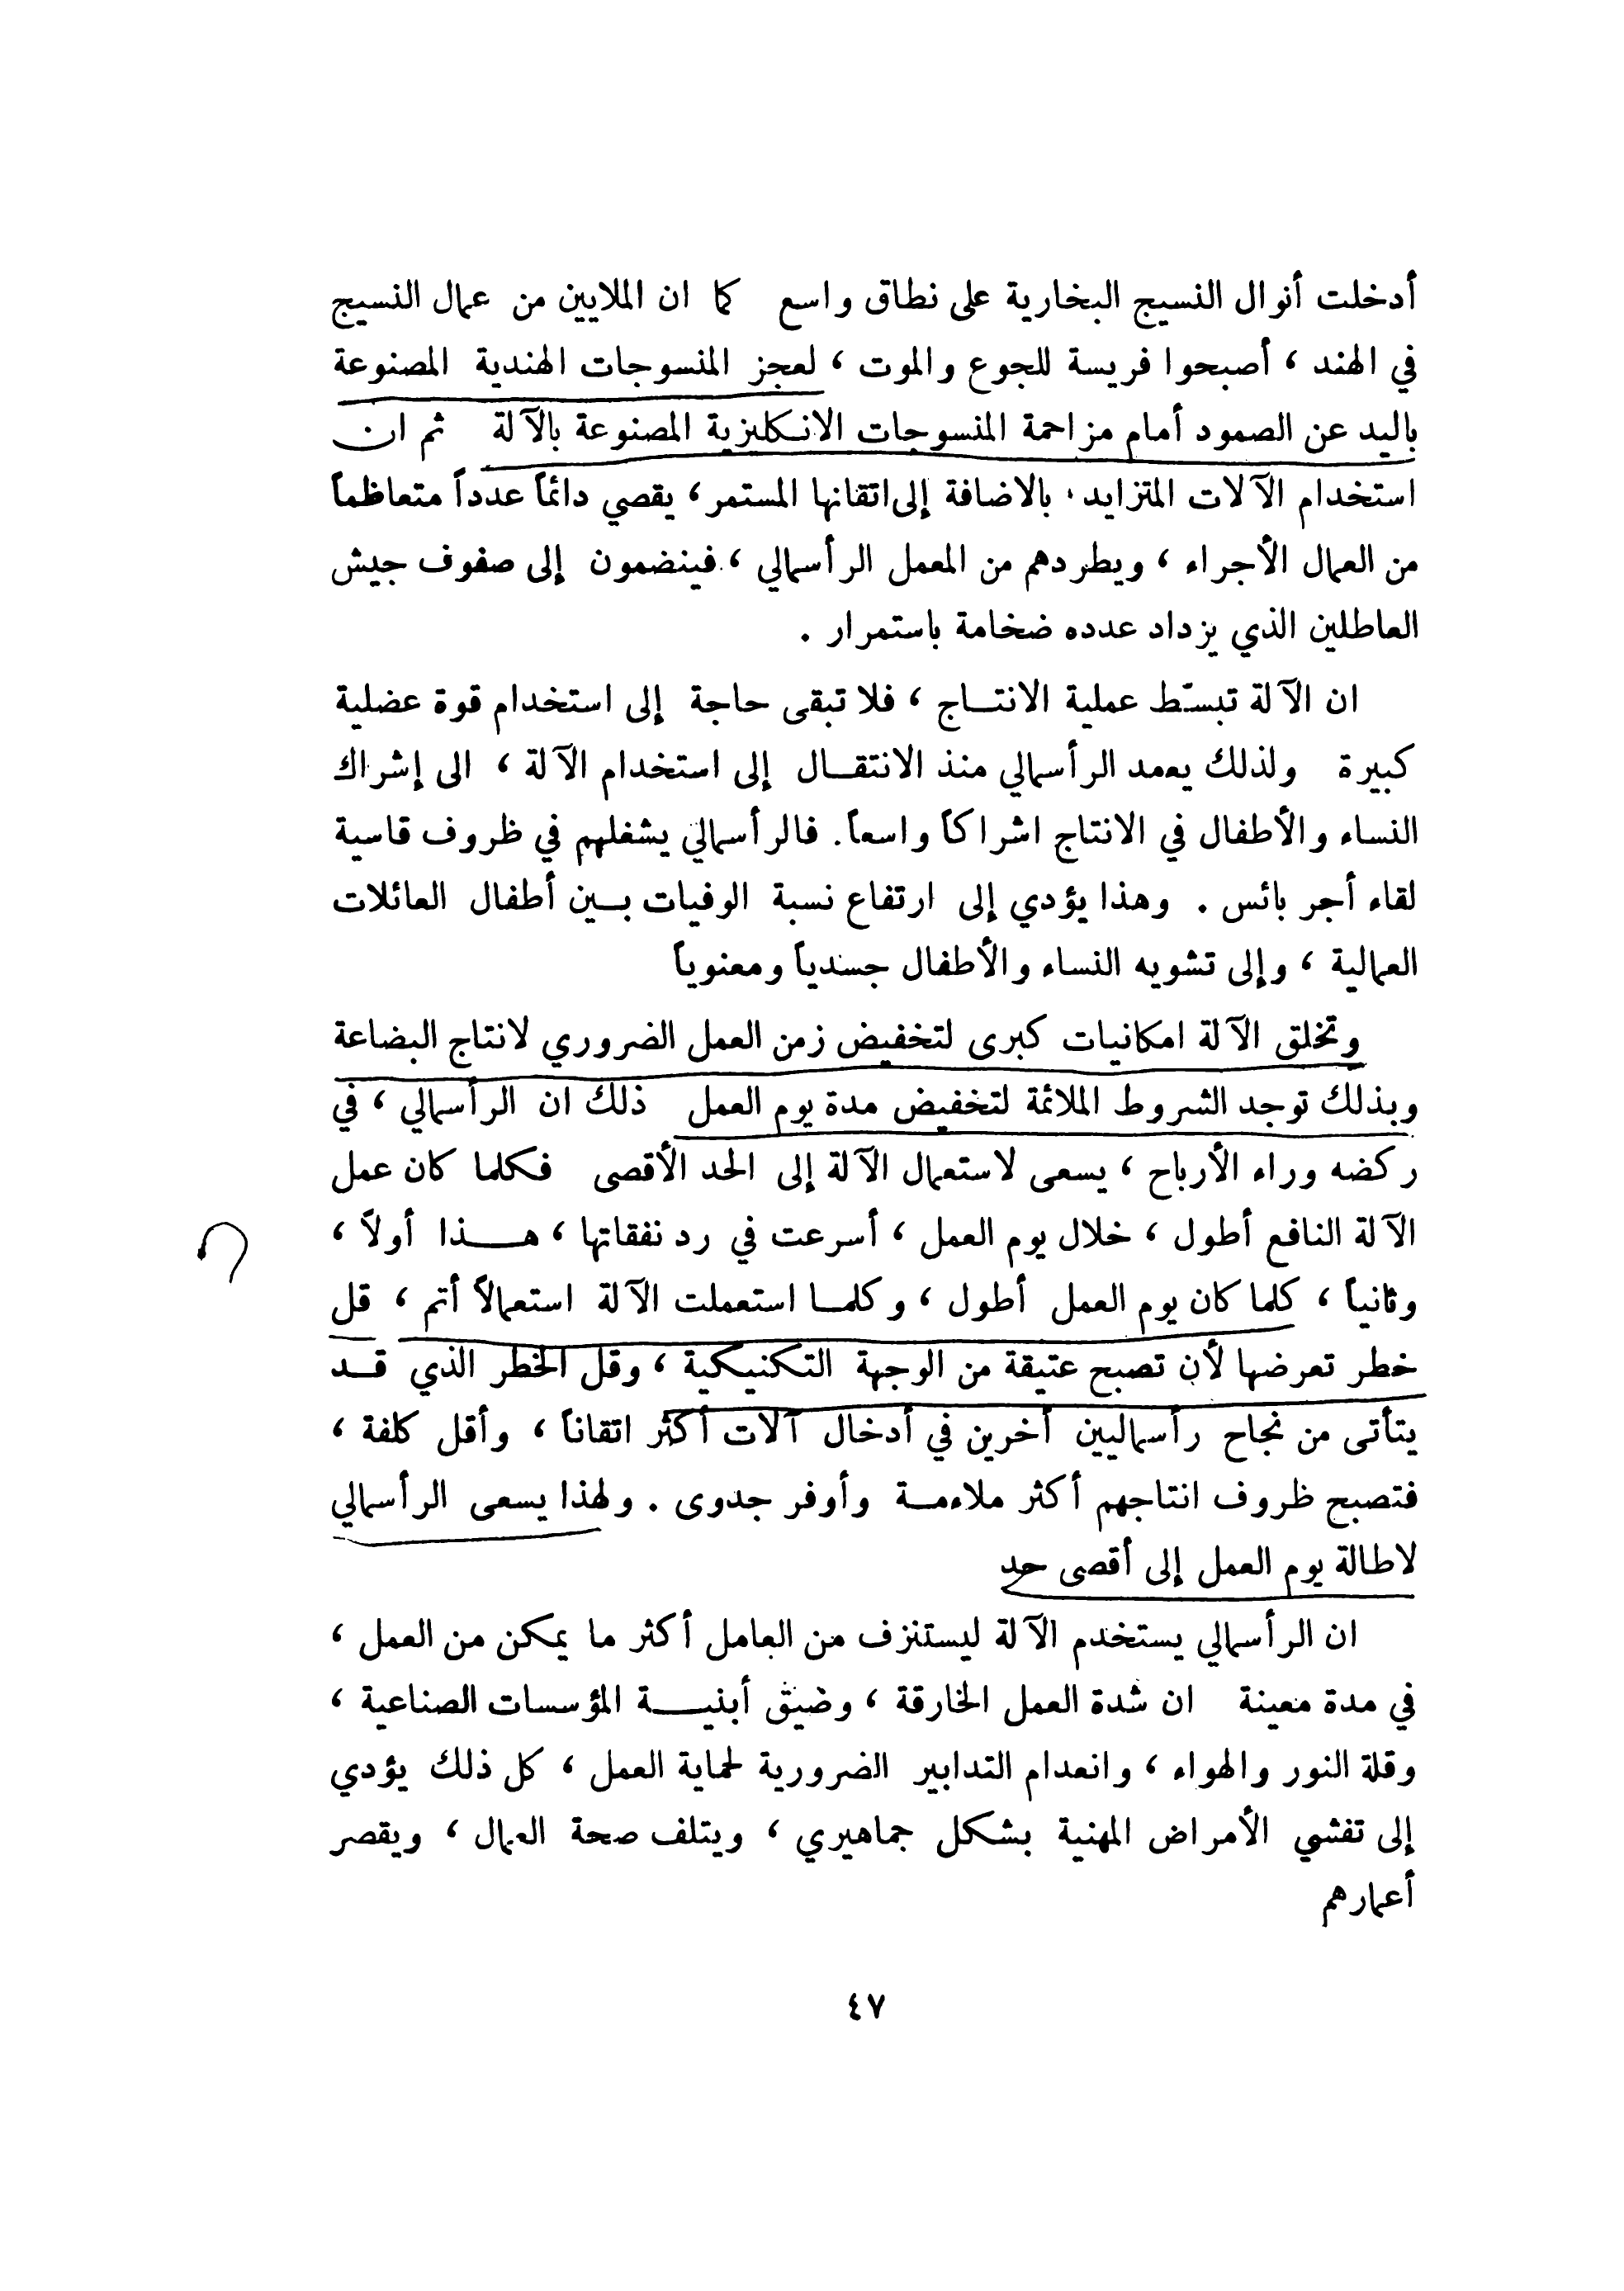 أدخلت أنوال النسيج البخارية على نطاق واسع كما ان الملايين من عمال النسيج
في الهند ، أصبحوا فريسة للجوع والموت ، لعجز المنسوجات الهندية المصنوعة
باليد عن الصمود أمام مزاحمة المنسوجات الانكليزية المصنوعة بالآلة ثم ان
استخدام الآلات المتزايد ، بالاضافة إلى اتقانها المستمر ، يقصي دائماً عدداً متعاظماً
من العمال الأجراء ، ويطردهم من المعمل الرأسمالي ، فينضمون إلى صفوف جيش
العاطلين الذي يزداد عدده ضخامة باستمرار .
ان الآلة تبسّط عملية الانتاج ، فلا تبقى حاجة إلى استخدام قوة عضلية
كبيرة ولذلك يعمد الرأسمالي منذ الانتقال إلى استخدام الآلة ، الى إشراك
النساء والأطفال في الانتاج اشراكاً واسعاً . فالرأسمالي يشغلهم في ظروف قاسية
لقاء أجر بائس . وهذا يؤدي إلى ارتفاع نسبة الوفيات بين أطفال العائلات
العمالية ، وإلى تشويه النساء والأطفال جسدياً ومعنوياً
وتخلق الآلة امكانيات كبرى لتخفيض زمن العمل الضروري لانتاج البضاعة
وبذلك توجد الشروط الملائمة لتخفيض مدة يوم العمل ذلك ان الرأسمالي ، في
ركضه وراء الأرباح ، يسعى لاستعمال الآلة إلى الحد الأقصى فكلما كان عمل
الآلة النافع أطول ، خلال يوم العمل ، أسرعت في رد نفقاتها ، هذا أولاً ،
وثانياً ، كلما كان يوم العمل أطول ، وكلما استعملت الآلة استعمالاً أتم ، قل
خطر تعرضها لأن تصبح عتيقة من الوجهة التكنيكية ، وقل الخطر الذي قد
يتأتى من نجاح رأسماليين أخرين في أدخال آلات أكثر اتقاناً ، وأقل كلفة ،
فتصبح ظروف انتاجهم أكثر ملاءمة وأوفر جدوى . ولهذا يسعى الرأسمالي
لاطالة يوم العمل إلى أقصى حد
ان الرأسمالي يستخدم الآلة ليستنزف من العامل أكثر ما يمكن من العمل ،
في مدة معينة ان شدة العمل الخارقة ، وضيق أبنية المؤسسات الصناعية ،
وقلة النور والهواء ، وانعدام التدابير الضرورية لحماية العمل ، كل ذلك يؤدي
إلى تفشي الأمراض المهنية بشكل جماهيري ، ويتلف صحة العمال ، ويقصر
أعمارهم
٤٧